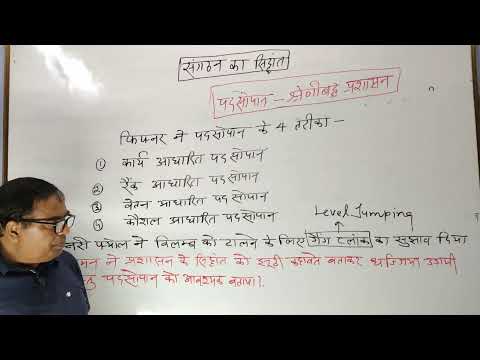 संगठन का सिद्धांत
पदसोपान - श्रेणीबद्ध प्रशासन
फिफनर ने पदसोपान के 4 तरीका -
① कार्य आधारित पदसोपान
② रैंक आधारित पदसोपान
③ वेतन आधारित पदसोपान
④ कौशल आधारित पदसोपान
Level Jumping
ने विलम्ब को टालने के लिए गैंग प्लांक का सुझाव दिया
ने प्रशासन के सिद्धांत को झूठी कहावत बताकर धज्जियां उड़ायी
पदसोपान को आवश्यक बताया।